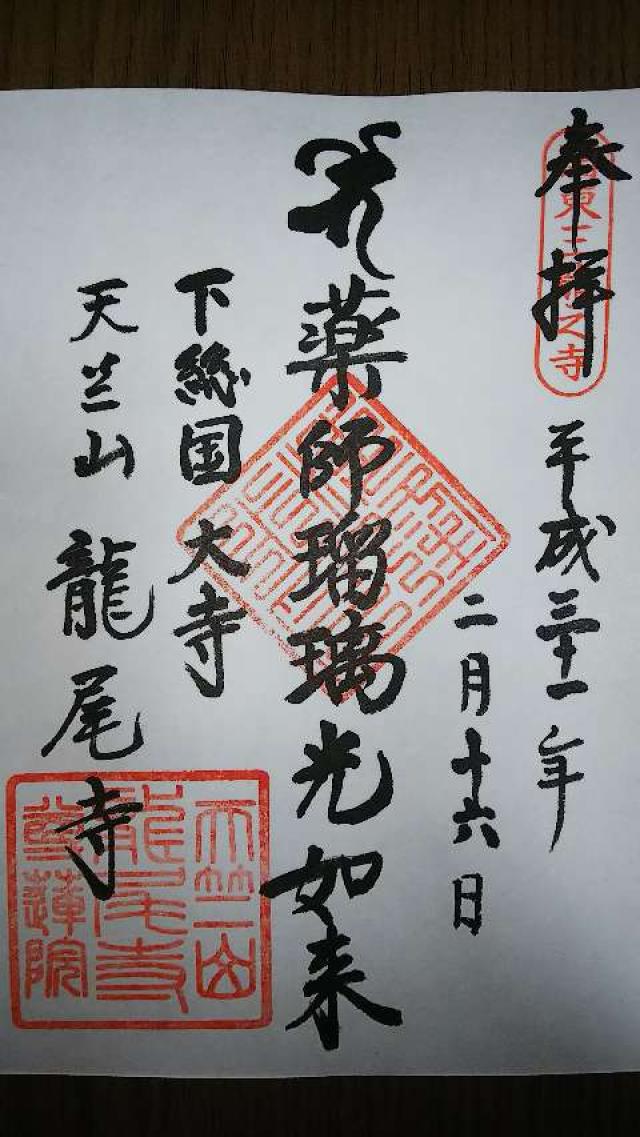 奉拝
東三
之寺
平成三十一年
二月十六日
薬師瑠璃光如来
下総国 大寺
天竺山 龍尾寺
天竺山
龍尾寺
尊蓮院